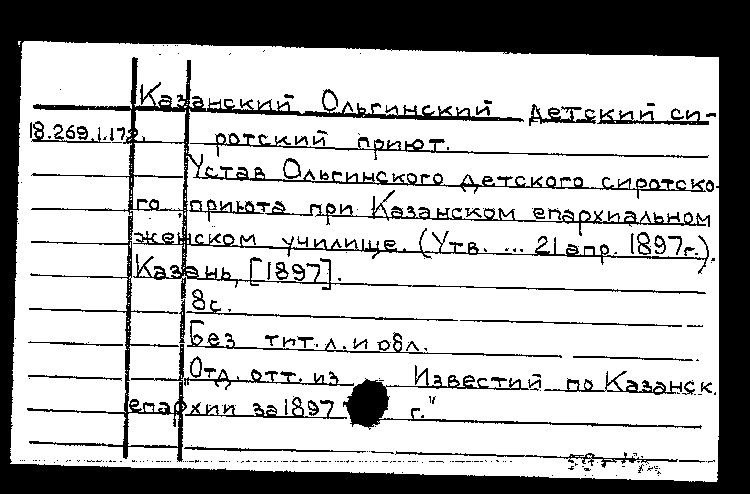 Казанский Ольгинский детский си-
18.269.1.172. ротский приют.
Устав Ольгинского детского сиротско-
го приюта при Казанском епархиальном
женском училище. (Утв. ... 21 апр. 1897г.).
Казань, [1897].
8с.
Без тит.л. и обл.
"Отд. отт. из Известий по Казанск.
епархии за 1897 г."